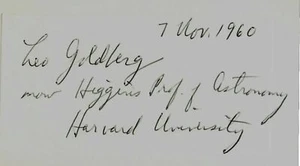 7 Nov. 1960
Leo Goldberg
now Higgins Prof. of Astronomy
Harvard University